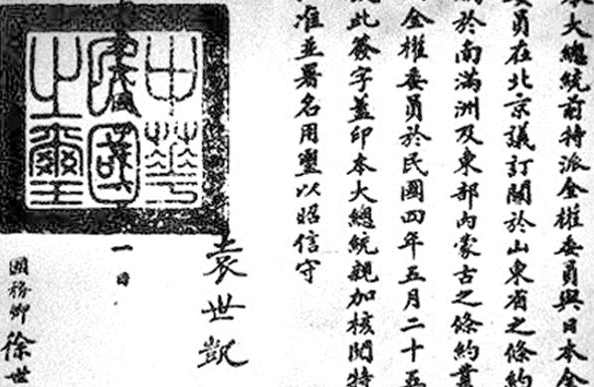 大總統前特派全權委員與日本全
委員在北京議訂關於山東省之條約
於南滿洲及東部內蒙古之條約業
全權委員於民國四年五月二十五
此簽字蓋印本大總統親加核閱特
准並署名用璽以昭信守
袁世凱
中華
民國
之璽
一日
國務卿徐世